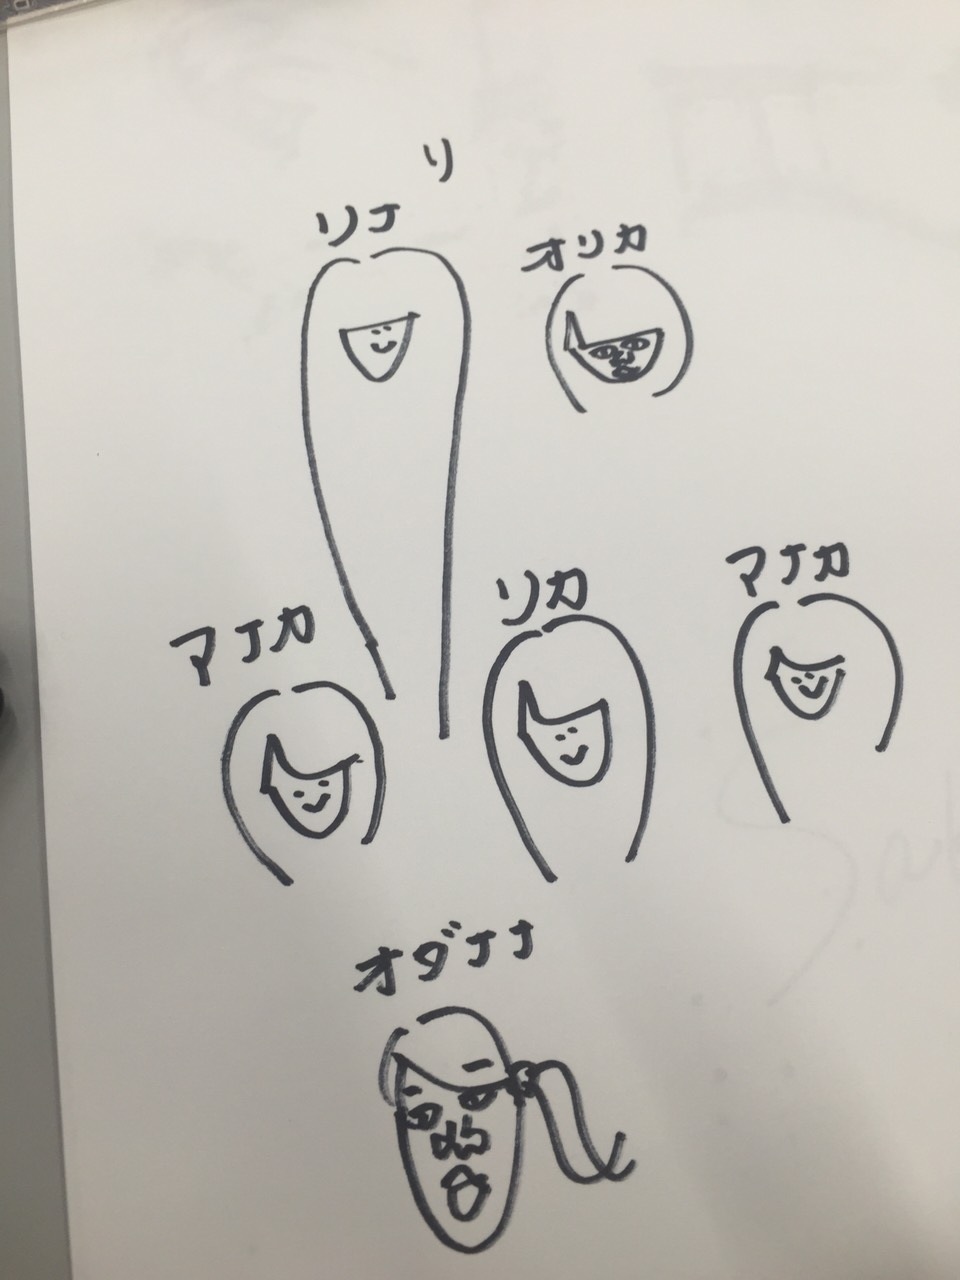 リ
リナ
オリカ
マナカ
リカ
マナカ
オダナナ